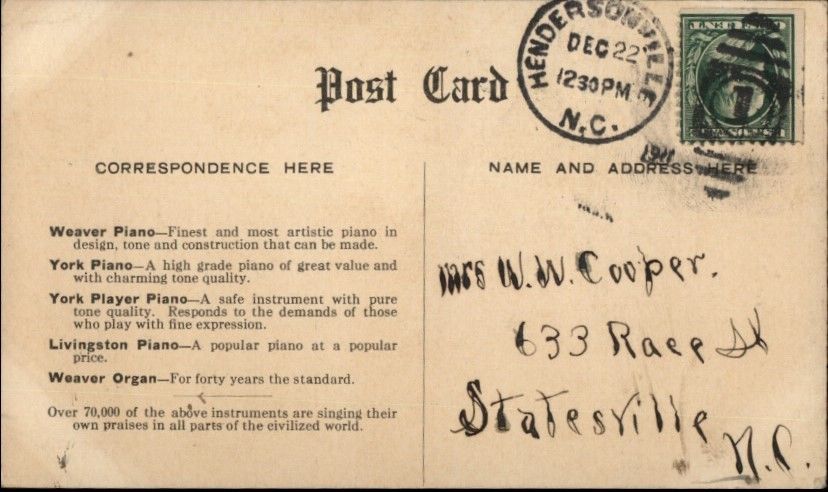 Post Card
HENDERSONVILLE
DEC 22
1230PM
N.C.
1911
CORRESPONDENCE HERE
NAME AND ADDRESS HERE
Weaver Piano—Finest and most artistic piano in
design, tone and construction that can be made.
York Piano—A high grade piano of great value and
with charming tone quality.
York Player Piano—A safe instrument with pure
tone quality. Responds to the demands of those
who play with fine expression.
Livingston Piano—A popular piano at a popular
price.
Weaver Organ—For forty years the standard.
Over 70,000 of the above instruments are singing their
own praises in all parts of the civilized world.
Mrs W.W. Cooper.
633 Race St
Statesville
N.C.